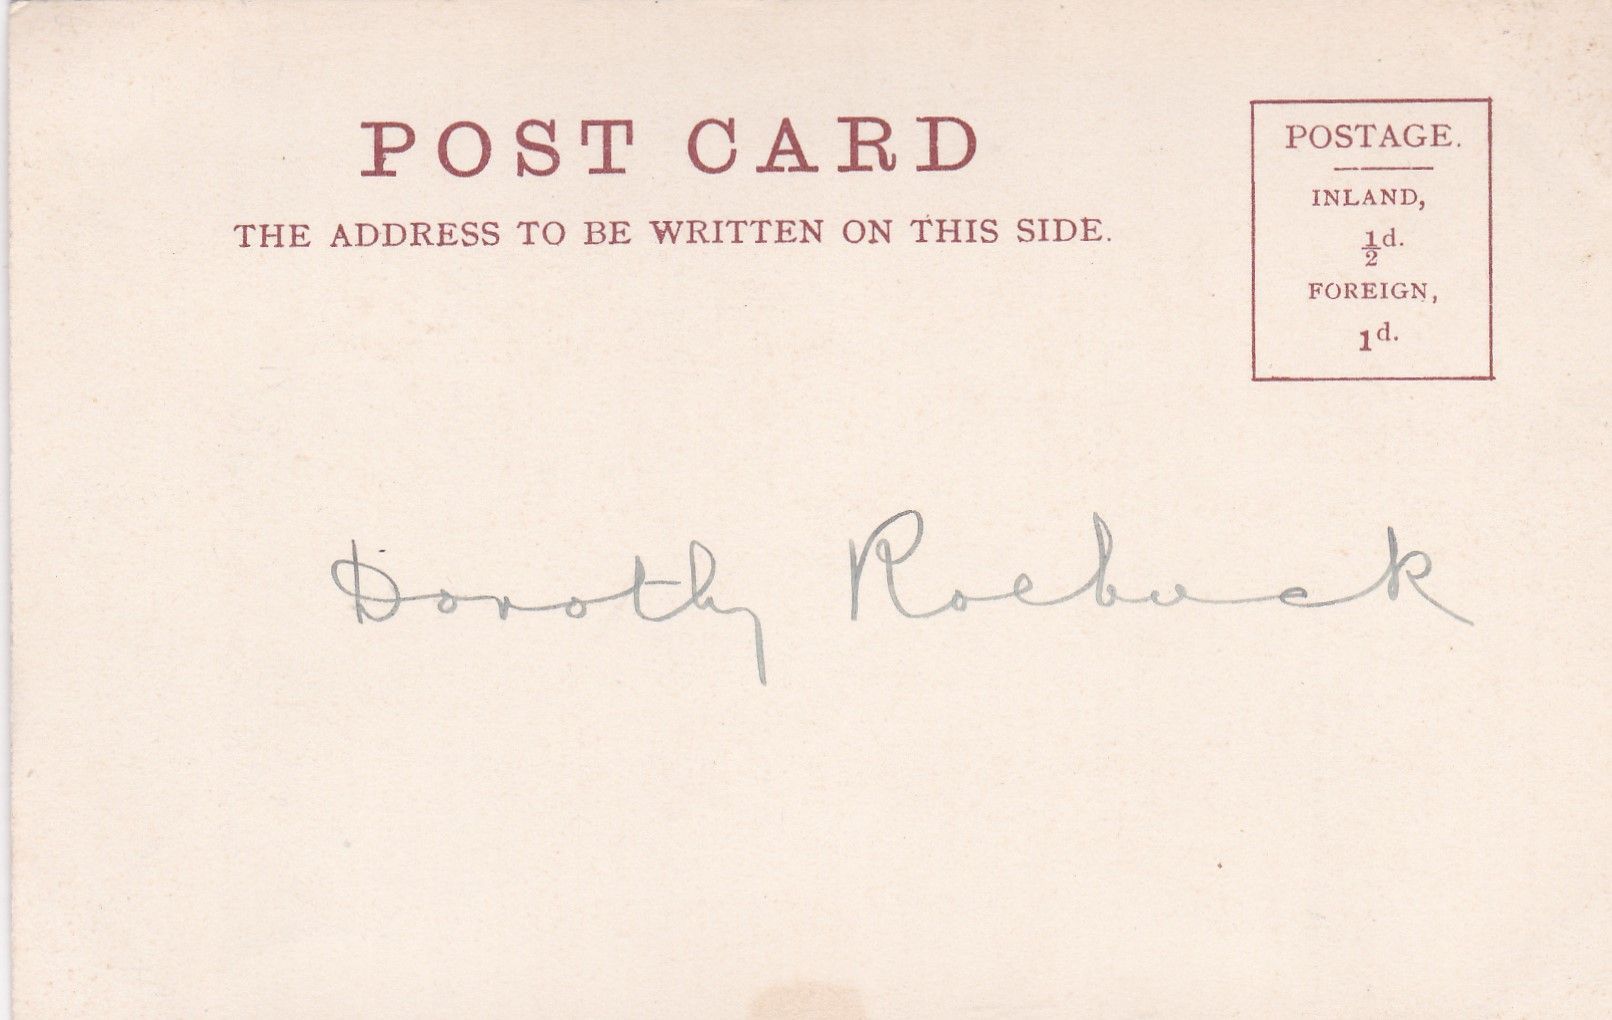 POST CARD
THE ADDRESS TO BE WRITTEN ON THIS SIDE.
POSTAGE.
INLAND,
½d.
FOREIGN,
1d.
Dorothy Roebuck